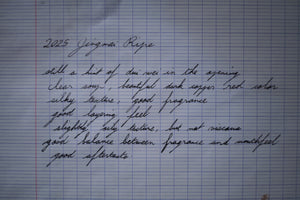 2025 Jingmai Ripe
still a hint of dui wei in the opening
clear soup, beautiful dark copper red color
silky texture, good fragrance
good layering feel
slightly oily texture, but not viscous
good balance between fragrance and mouthfeel
good aftertaste